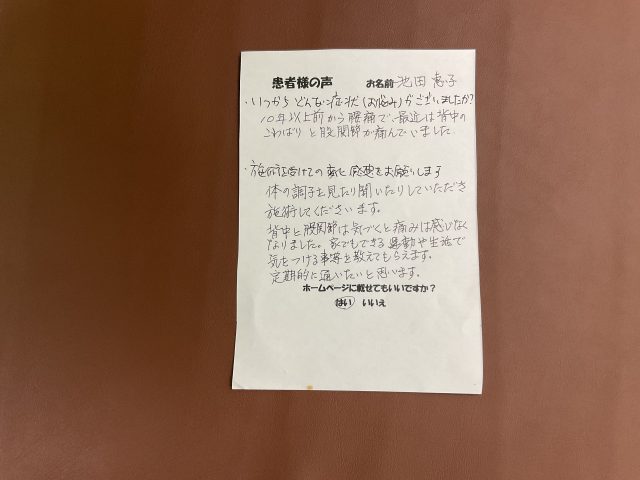 患者様の声 お名前 池田 恵子
・いつからどんな症状(お悩み)がございましたか?
10年以上前から腰痛で、最近は背中の
こわばりと股関節が痛んでいました
・施術を受けての変化 感想をお願いします
体の調子を見たり聞いたりしていただき
施術してくださいます。
背中と股関節は気づくと痛みは感じなく
なりました。家でもできる運動や生活で
気をつける事等を教えてもらえます。
定期的に通いたいと思います。
ホームページに載せてもいいですか?
はい いいえ